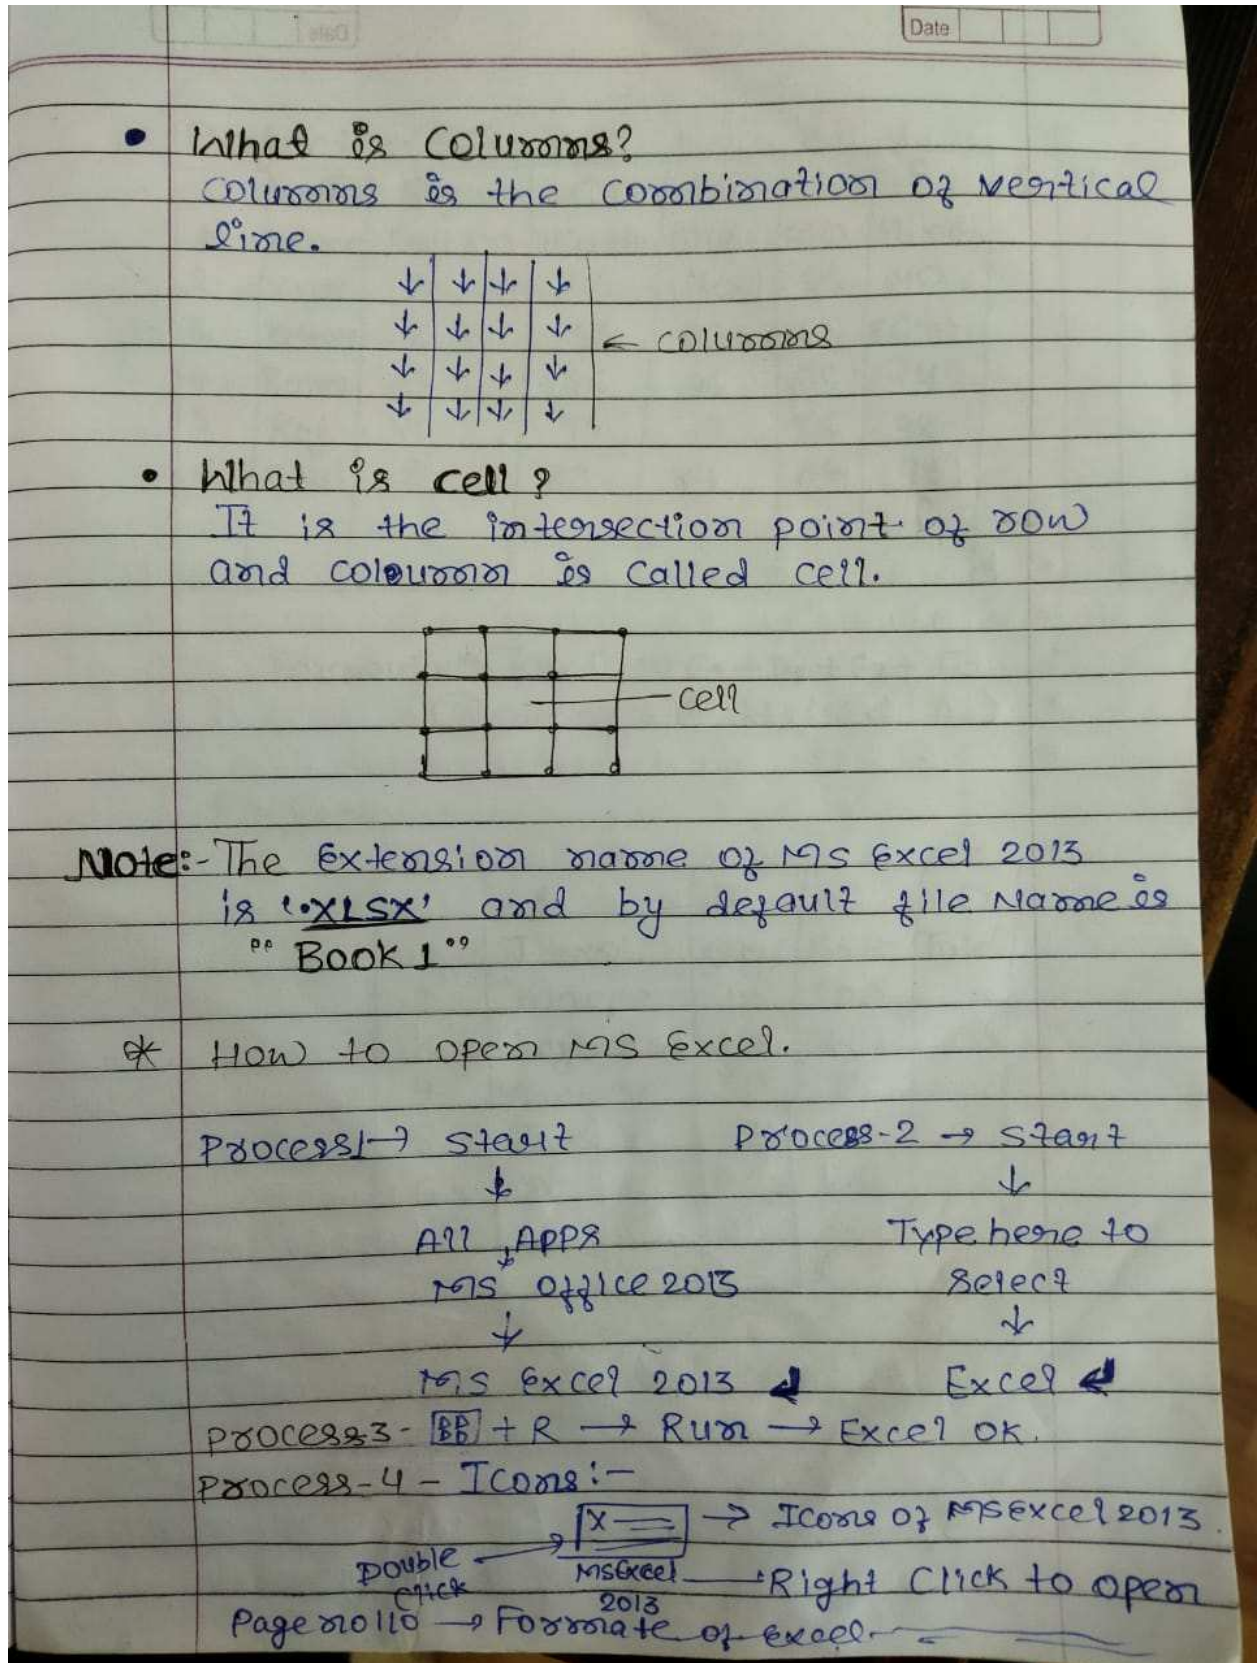 Date
What is Columns?
Columns is the Combination of vertical
line.
← Columns
What is cell?
It is the intersection point of row
and coloumn is Called cell.
cell
Note:- The Extension name of MS Excel 2013
is '.XLSX' and by default file Name is
"Book 1"
* How to open MS Excel.
Process1→ Start Process-2 → Start
↓ ↓
All Apps Type here to
↓
MS Office 2013 Select
↓ ↓
MS Excel 2013 ↲ Excel ↲
Process3- + R → Run → Excel OK.
Process-4 - Icons:-
X → Icons of MS Excel 2013.
Double Click
MS Excel 2013 → Right Click to open
Page no 110 → Formate of Excel.